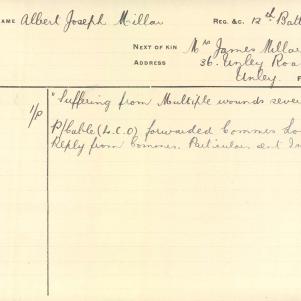 NAME Albert Joseph Millar REG. &C. 12th Batt
NEXT OF KIN Mrs James Millar
ADDRESS 36. Unley Roa
Unley. F
1/P "Suffering from Multiple wounds seve
P/Cable (L.C.O) forwarded Commes Lo
Reply from Commes. Particulars sent In